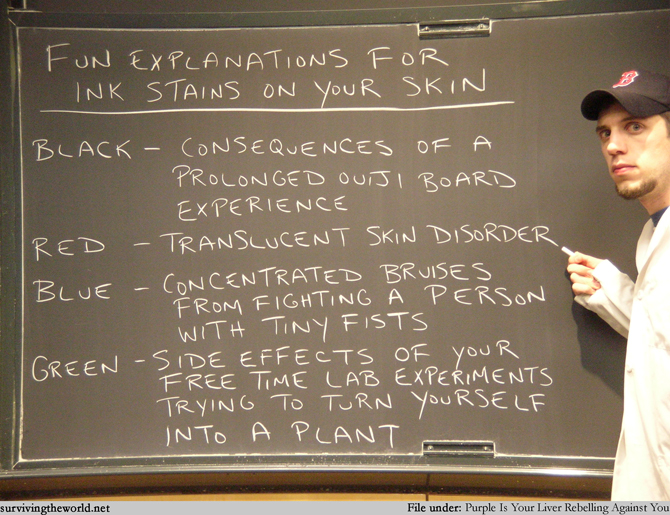 FUN EXPLANATIONS FOR
INK STAINS ON YOUR SKIN
BLACK - CONSEQUENCES OF A
PROLONGED OUIJI BOARD
EXPERIENCE
RED - TRANSLUCENT SKIN DISORDER
BLUE - CONCENTRATED BRUISES
FROM FIGHTING A PERSON
WITH TINY FISTS
GREEN - SIDE EFFECTS OF YOUR
FREE TIME LAB EXPERIMENTS
TRYING TO TURN YOURSELF
INTO A PLANT
B
survivingtheworld.net File under: Purple Is Your Liver Rebelling Against You